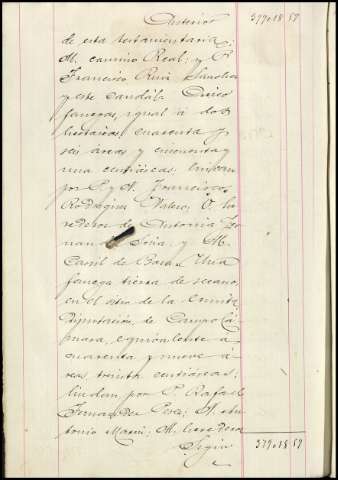 Anterior 37901859
de esta testamentaria;
M. camino Real; y P.
Francisco Ruiz Sanchez
y este caudal. Cinco
fanegas, igual á dos
hectáreas, cuarenta y
seis áreas y cincuenta y
una centiáreas, lindan
por P. y N. Francisco
Rodriguez Valero, O. he
rederos de Antonia Fer
nan Soria, y M.
Carril de Baza. Una
fanega tierra de secano,
en el sitio de la Ermita
Diputación de Campo Cá
mara, equivalente á
cuarenta y nueve á
reas, treinta centiáreas,
lindan, por P. Rafael
Fernandez Perez; N. An
tonio Marin; M. herederos
Sigue 37901859